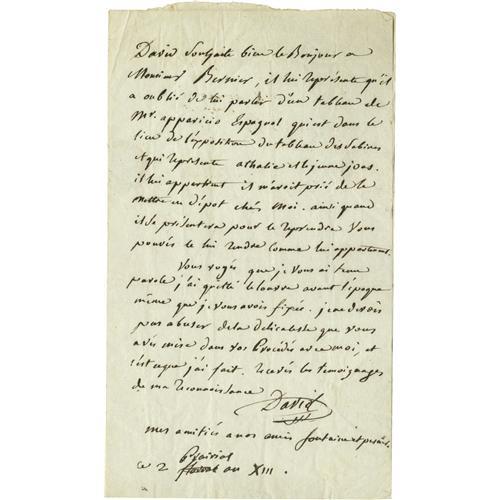 David Souhaite bien le Bonjour a
Monsieur Bernier, il lui représente qu'il
a oublié de lui parler d'un tableau de
Mr. apparicio Espagnol qui est dans le
lieu de l'exposition du tableau des Sabines
et qui représente athalie et le jeune joas.
il lui appartient il m'avoit prié de le
mettre en dépot chés Moi. ainsi quand
il se présentera pour le reprendre vous
pouvés le lui rendre comme lui appartenant.
Vous voyés que je vous ai tenu
parole j'ai quitté le louvre avant l'époque
même que je vous avois fixée. je ne devois
pas abuser de la délicatesse que vous
avés mise dans vos procédés avec moi, et
c'est ce que j'ai fait. recevés les témoignages
de ma reconnoissance
David
mes amitiés a nos amis fontaine et percier.
Prairial
ce 2 floreal an XIII.